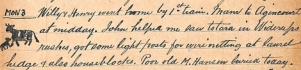 MON 3 Willy & Henry went home by 1st train. Frans to Agincourt
at midday. John helped me saw totara in Widerips
rushes, got some light posts for wire netting at laurel
hedge & also houseblocks. Poor old M. Hansen buried today.